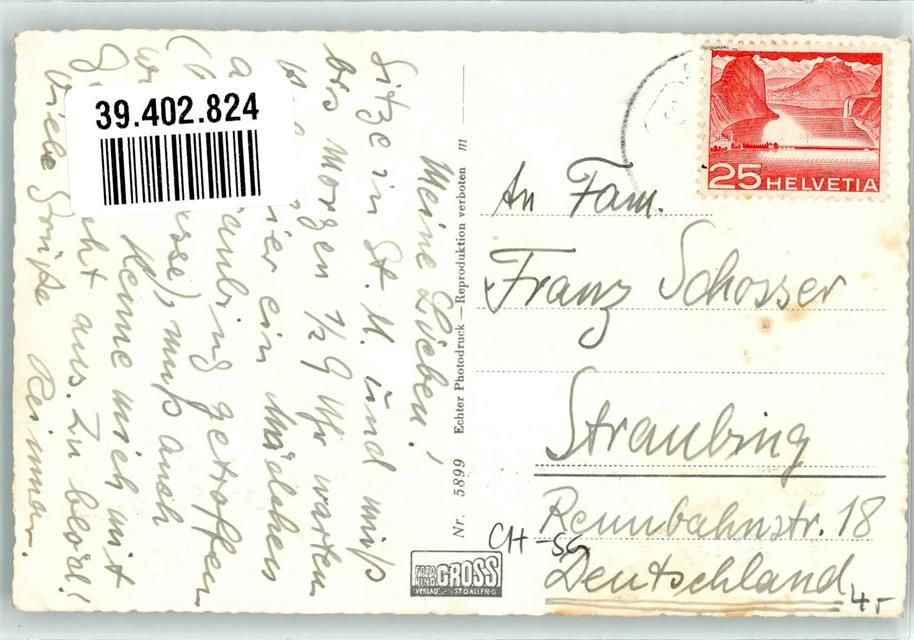 39.402.824
Meine Lieben!
Sitze in St. M. und muß
bis Morgen ½ 9 Uhr warten
hier ein Mädchen
aus Straubing getroffen
muß auch
Kenne mich mit
nicht aus. Zu blöd!
Viele Grüße
Nr. 5899 Echter Photodruck — Reproduktion verboten m
FOTO
KINO GROSS
VERLAG ST GALLEN O
25 HELVETIA
An Fam.
Franz Schosser
Straubing
Rennbahnstr. 18
Deutschland
CH-SG
4,-